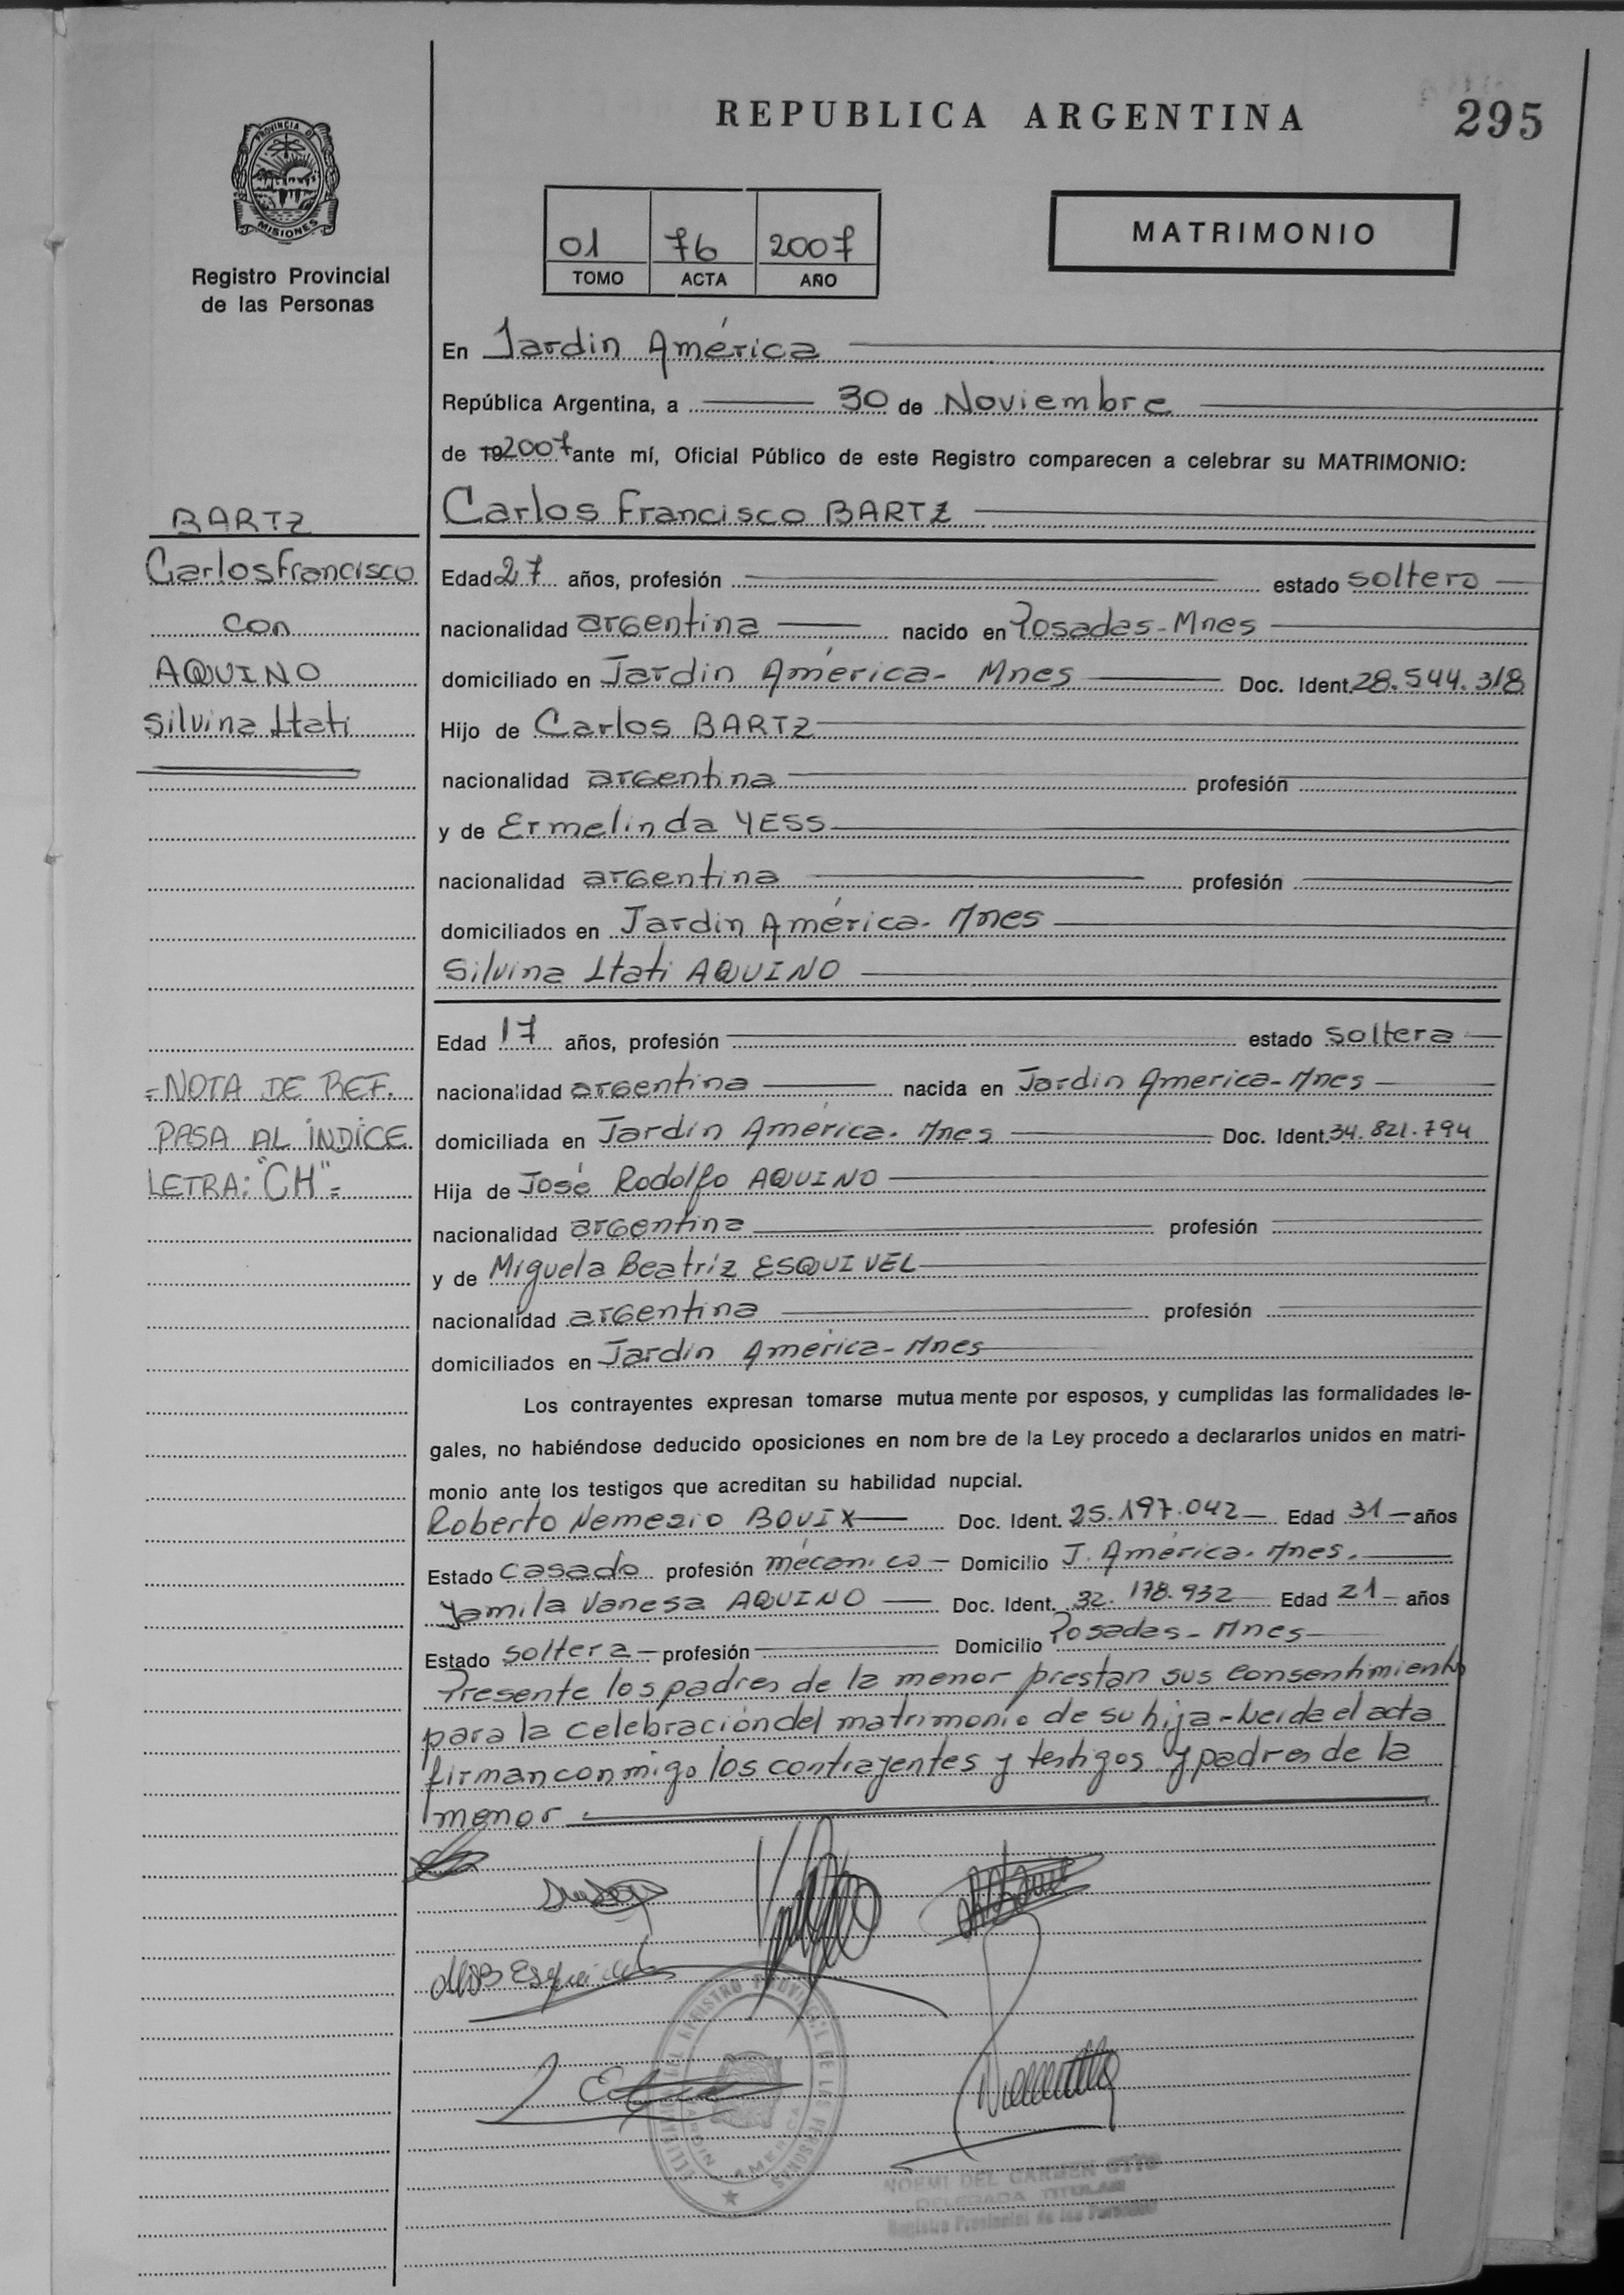 REPUBLICA ARGENTINA
295
PROVINCIA DE
MISIONES
Registro Provincial
de las Personas
01 76 2007
TOMO ACTA AÑO
MATRIMONIO
En Jardin América
República Argentina, a 30 de Noviembre
de 19 2007 ante mí, Oficial Público de este Registro comparecen a celebrar su MATRIMONIO:
Carlos Francisco BARTZ
BARTZ
Carlos Francisco
con
AQUINO
Silvina Itati
Edad 27 años, profesión estado soltero
nacionalidad argentina nacido en Posadas-Mnes
domiciliado en Jardin América- Mnes Doc. Ident. 28.544.318
Hijo de Carlos BARTZ
nacionalidad argentina profesión
y de Ermelinda YESS
nacionalidad argentina profesión
domiciliados en Jardin América- Mnes
Silvina Itati AQUINO
Edad 17 años, profesión estado soltera
nacionalidad argentina nacida en Jardin America-Mnes
domiciliada en Jardin América- Mnes Doc. Ident. 34.821.794
Hija de José Rodolfo AQUINO
nacionalidad argentina profesión
y de Miguela Beatriz ESQUIVEL
nacionalidad argentina profesión
domiciliados en Jardin América-Mnes
=NOTA DE REF.
PASA AL INDICE
LETRA: "CH"=
Los contrayentes expresan tomarse mutua mente por esposos, y cumplidas las formalidades le-
gales, no habiéndose deducido oposiciones en nom bre de la Ley procedo a declararlos unidos en matri-
monio ante los testigos que acreditan su habilidad nupcial.
Roberto Nemesio BOVIX Doc. Ident. 25.197.042 Edad 31 años
Estado casado profesión mécanico Domicilio J. América- Mnes.
Yamila Vanesa AQUINO Doc. Ident. 32.178.932 Edad 21 años
Estado soltera profesión Domicilio Posadas- Mnes
Presente los padres de la menor prestan sus consentimiento
para la celebración del matrimonio de su hija-Leida el acta
firman conmigo los contrayentes y testigos y padres de la
menor
REGISTRO PROVINCIAL DE LAS PERSONAS
JARDIN AMERICA
NOEMI DEL CARMEN OTTO
DELEGADA TITULAR
Registro Provincial de las Personas